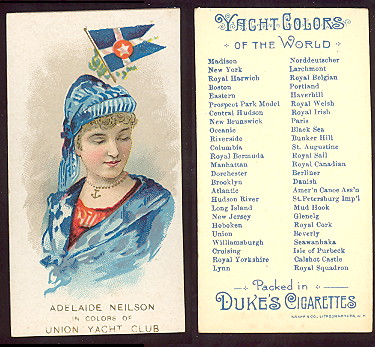 ADELAIDE NEILSON
IN COLORS OF
UNION YACHT CLUB
YACHT COLORS
OF THE WORLD
Madison
New York
Royal Harwich
Boston
Eastern
Prospect Park Model
Central Hudson
New Brunswick
Oceanic
Riverside
Columbia
Royal Bermuda
Manhattan
Dorchester
Brooklyn
Atlantic
Hudson River
Long Island
New Jersey
Hoboken
Union
Williamsburgh
Cruising
Royal Yorkshire
Lynn
Norddeutscher
Larchmont
Royal Belgian
Portland
Haverhill
Royal Welsh
Royal Irish
Paris
Black Sea
Bunker Hill
St. Augustine
Royal Sail
Royal Canadian
Berliner
Danish
Amer'n Canoe Ass'n
St. Petersburg Imp'l
Mud Hook
Glenelg
Royal Cork
Beverly
Seawanhaka
Isle of Purbeck
Calshot Castle
Royal Squadron
Packed in
DUKE'S CIGARETTES
KNAPP & CO., LITHOGRAPHERS, N.Y.